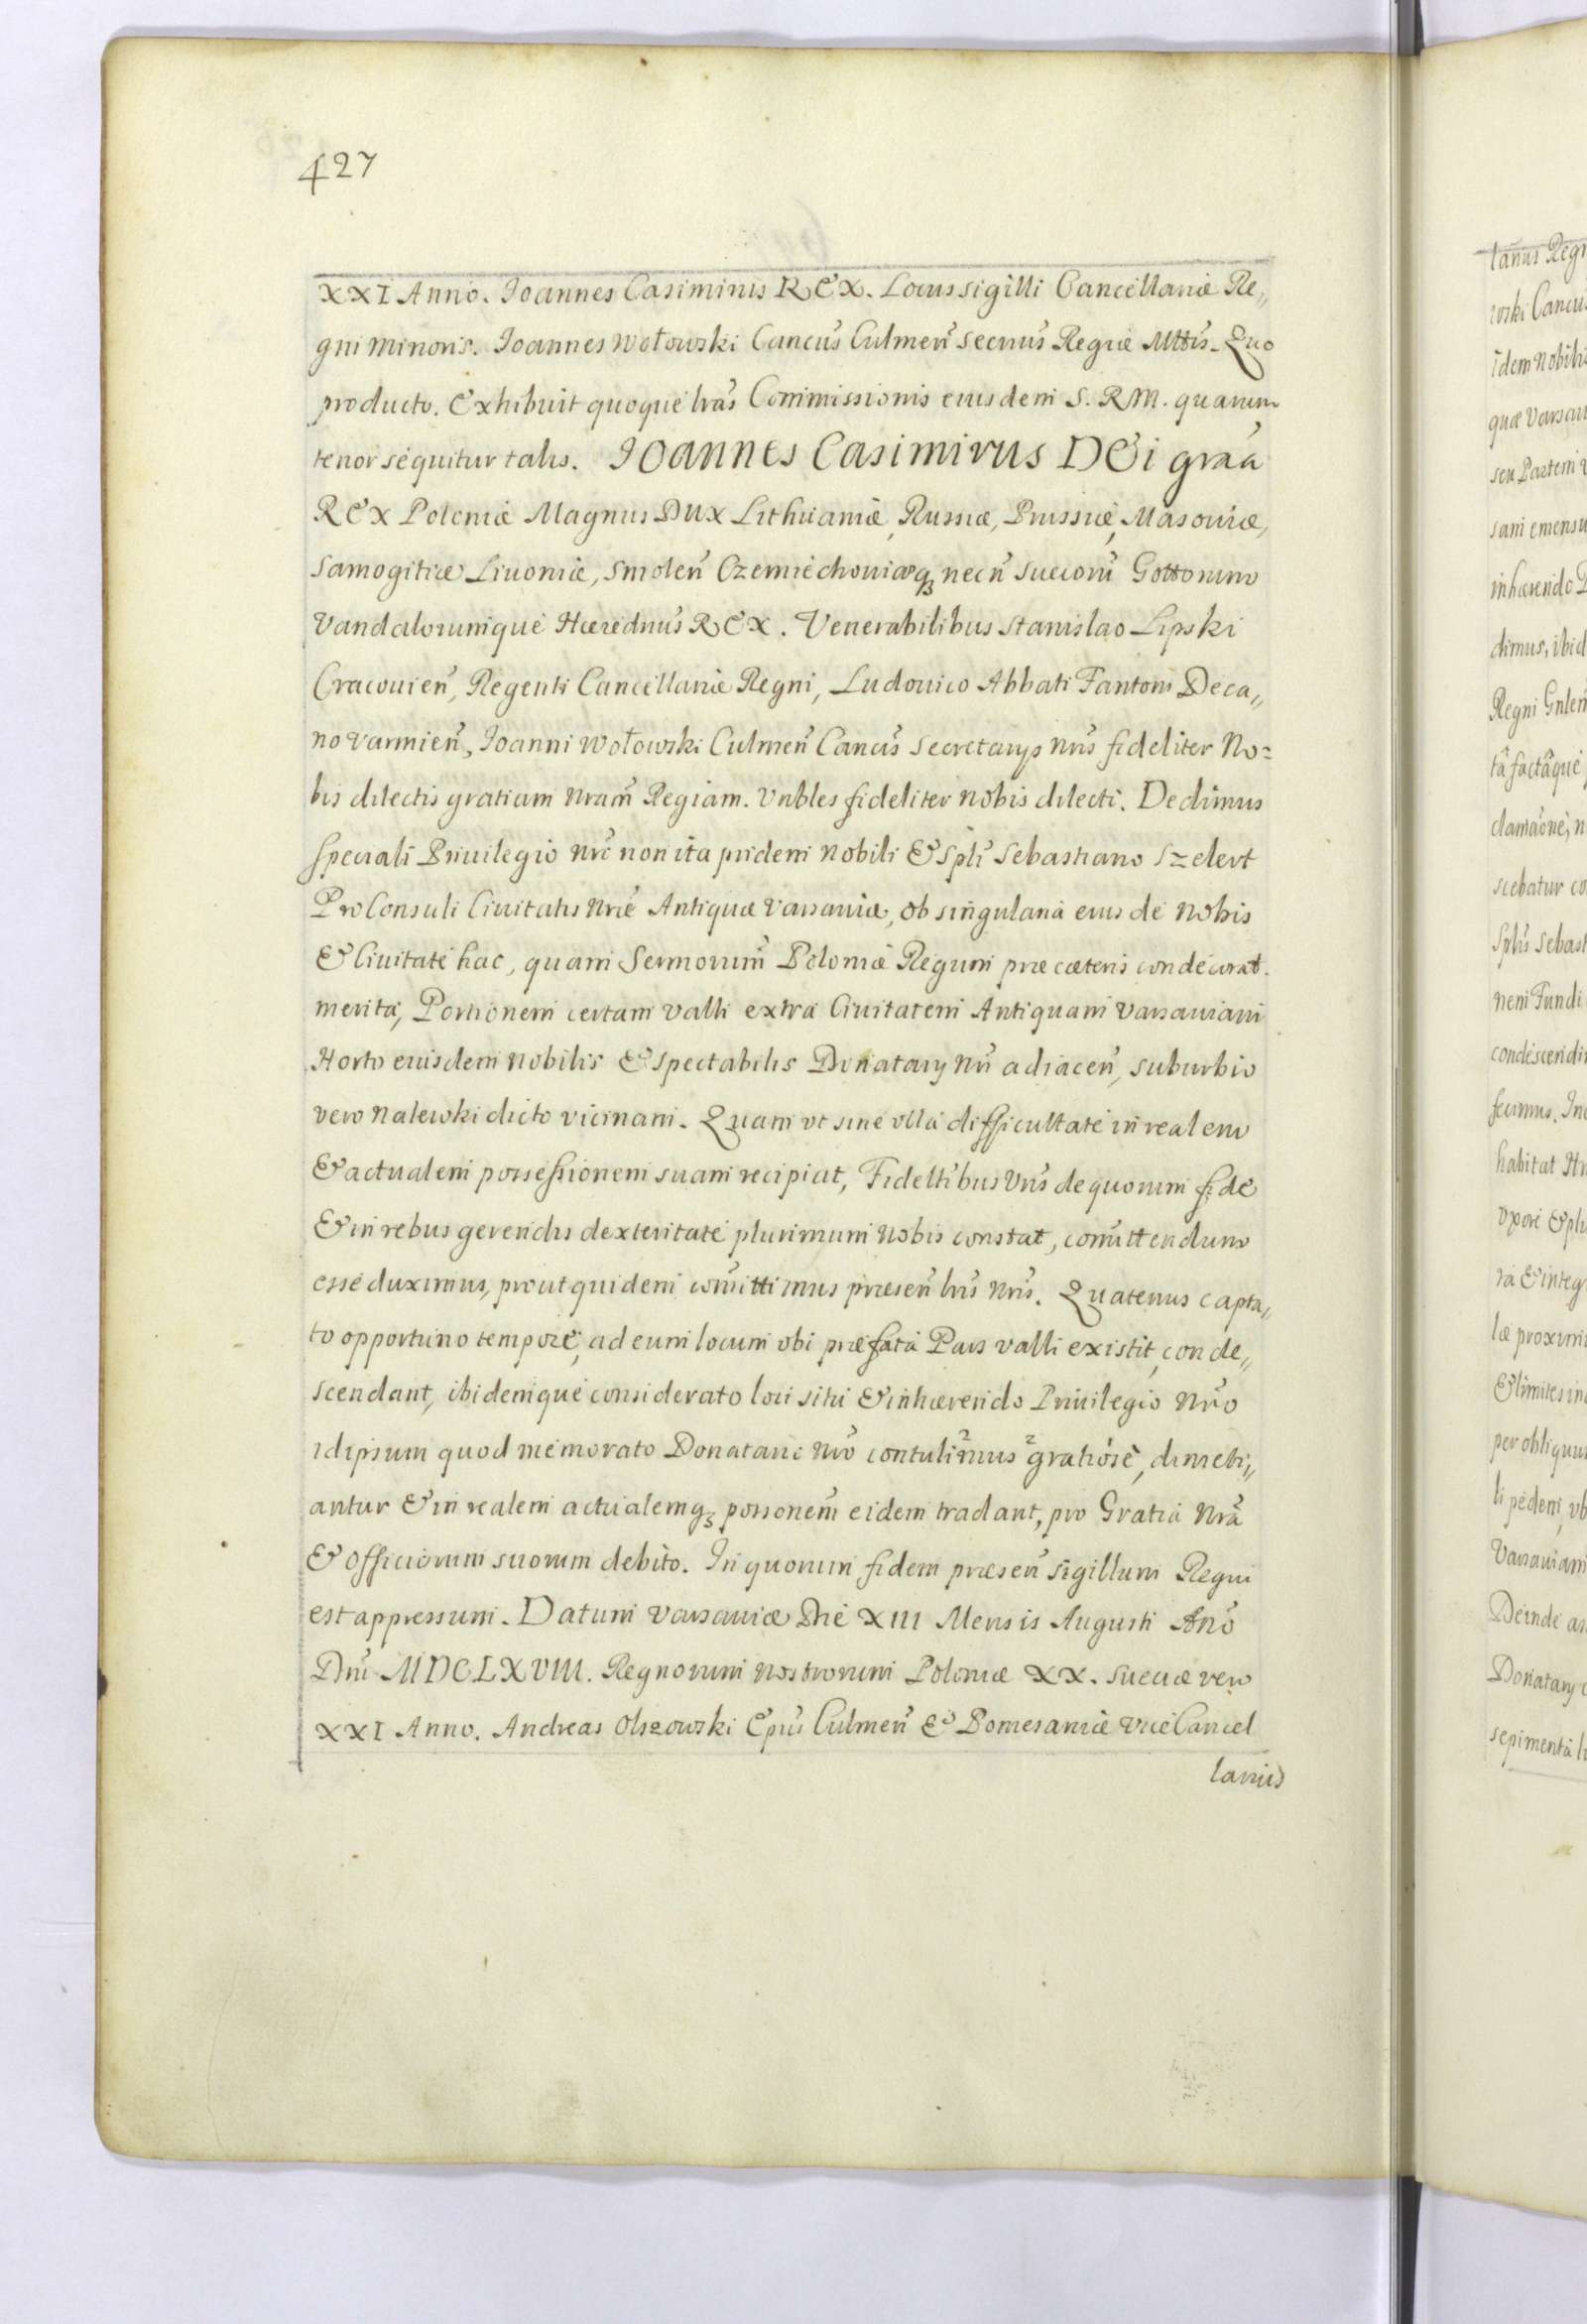 427
XXI Anno. Joannes Casimirus REX. Locus sigilli Cancellariæ Re„
gni minoris. Joannes Wołowski Cancus Culmeñ Secrius Regiæ Mttis. Quo
producto. Exhibuit quoque lras Commissionis eiusdem S. RM. quarum
tenor sequitur talis. JOANNES Casimirus DEi graa
REX Poloniæ Magnus Dux Lithuaniæ, Russiæ, Prussiæ, Masoviæ,
Samogitiæ Livoniæ, Smoleñ Czerniechoviæq₃ necñ Suecorũ Gottorum
Vandalorumque Hæredrius REX. Venerabilibus Stanislao Lipski
Cracovieñ, Regenti Cancellariæ Regni, Ludovico Abbati Fantoni Deca„
no Varmieñ, Joanni Wołowski Culmeñ Cancis Secretarys nris fideliter No=
bis dilectis gratiam nram Regiam. Vnbles fideliter nobis dilecti. Dedimus
speciali Privilegio nro non ita pridem nobili & Spli Sebastiano Szelert
ProConsuli Civitatis nræ Antiquæ Varsaviæ, ob singularia eius de nobis
& Civitate hac, quam Sermorum Poloniæ Regum præ cæteris condecorat.
merita, Portionem certam valli extra Civitatem Antiquam Varsaviam
Horto eiusdem nobilis & spectabilis Donatary nri adiaceñ, suburbio
vero nalewki dicto vicinam. Quam vt sine vlla difficultate in realem
& actualem possessionem suam recipiat, Fideltibus Vris de quorum fide
& in rebus gerendis dexteritate plurimum nobis constat, comittendum
esse duximus, prout quidem comittimus præseñ lris nris. Quatenus capta„
to opportuno tempore, ad eum locum vbi præfata Pars valli existit, conde„
scendant, ibidemque considerato loci situ & inhærendo Privilegio nro
idipsum quod memorato Donatario nro contulimus gratiose, dimeti„
antur & in realem actualemq₃ possonem eidem tradant, pro Gratia nra
& officiorum suorum debito. In quorum fidem præseñ sigillum Regni
est appressum. Datum Varsaviæ Die XIII Mensis Augusti Ano
Dni MDCLXVIII. Regnorum nostrorum Poloniæ XX. Sueciæ vero
XXI Anno. Andreas Olszowski Epus Culmeñ & Pomesaniæ ViceCancel
larius